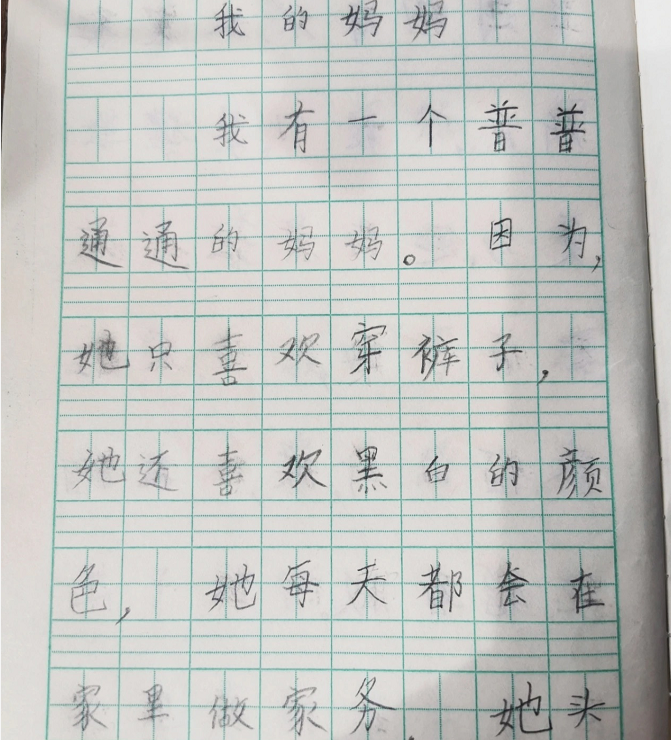 我的妈妈
我有一个普普
通通的妈妈。因为,
她只喜欢穿裤子,
她还喜欢黑白的颜
色,她每天都会在
家里做家务.她头